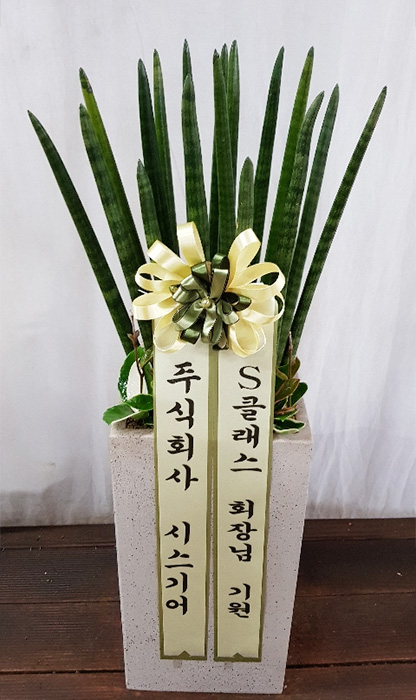 S클래스 회장님 기원
주식회사 시스기어